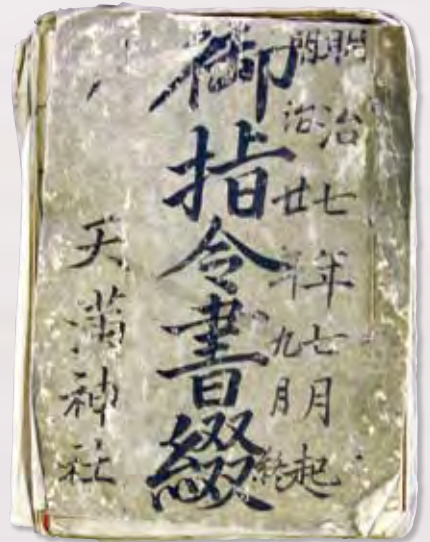 明治七年七月起
明治廿年九月終
御指令書綴
天満神社